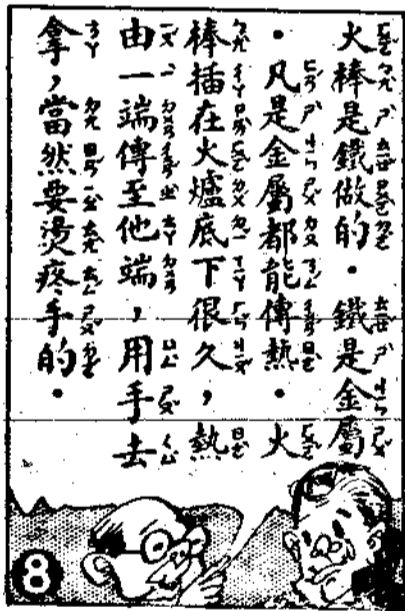 火棒是鐵做的．鐵是金屬
．凡是金屬都能傳熱．火
棒插在火爐底下很久，熱
由一端傳至他端，用手去
拿，當然要燙疼手的．
8